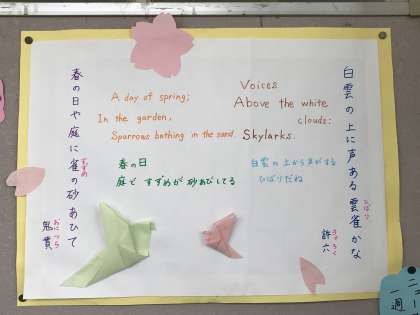 白雲の上に声ある雲雀かな
ひばり
許六
きょろく
Voices
Above the white
clouds:
Skylarks.
白雲の上から声がする
ひばりだね
A day of spring;
In the garden,
Sparrows bathing in the sand.
春の日
庭で すずめが 砂あびしてる
春の日や庭に雀の砂あひて
すずめ
鬼貫
おにつら
ニュー
一週